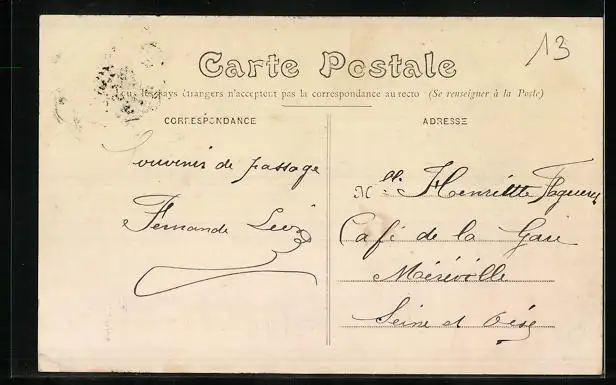 13
Carte Postale
pays étrangers n'acceptent pas la correspondance au recto (Se renseigner à la Poste)
CORRESPONDANCE
ADRESSE
Souvenir de passage
Fernande
Mlle Henriette
Café de la Gare
Méréville
Seine et Oise